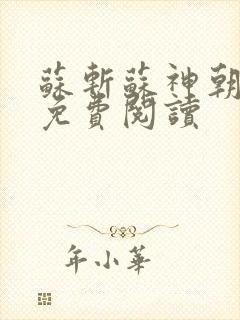 蘇斬蘇神朝
免費閱讀
年小華